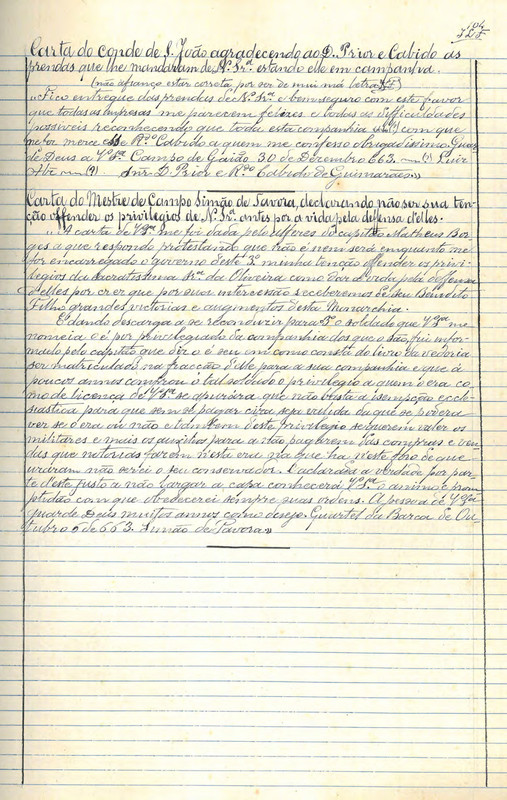 104
Carta do conde de S. João agradecendo ao D. Prior e Cabido as
prendas que lhe mandaram de N. Srª estando elle em campanha.
(não afianço estar correta por ser de mui má letra)
"Fico entregue das prendas de N. Srª e bem seguro com este favor
que todas as empresas me parecem felizes e todas as difficuldades
possiveis reconhecendo que toda esta companhia com que
me fez merce esse Rdo Cabido a quem me confesso obrigadissimo Guarde
Deus a VSas. Campo de Gaião 30 de Dezembro 663. — (?) Luiz
— (?) Snr. D. Prior e Rdo Cabido de Guimarães."
Carta do Mestre de Campo Simão de Tavora, declarando não ser sua ten-
ção offender os privilegios de N. Srª antes por a vida pela defensa d'elles.
"A carta de VSª me foi dada pelo alferes do capitão Matheus Bor-
ges a que respondo protestando que não é nem será emquanto me
fôr encarregado o governo deste 3º minha tenção offender os privi-
legios da Sacratissima Srª da Oliveira como dar a vida pela defensa
d'elles por crer que por sua intercessão receberemos de seu Bendito
Filho grandes victorias e augmentos desta Monarchia.
E dando descarga a se reconduzir para o 3º o soldado que VSª me
nomeia e é por privilegiado da companhia dos que o são, fui infor-
mado pelo capitão que diz o é seu como consta do livro da vedoria
ser matriculado na fracção d'elle para a sua companhia e que á
poucos annos comprou o tal soldado o privilegio a quem o era co-
mo de licença de VSª se apurára que não basta a isempção eccle-
siastica para que sem se pagar ciza seja vendida da que se poderá
ver se o era ou não e tambem d'este privilegio se querem valer os
militares e mais os auxilios para a não pagarem das compras e ven-
das que notorias fazem nesta era
não serei o seu conservador. E declarada a verdade por par-
te d'esta justa a não largar a caza conhecerá VSª o animo e prom-
ptidão com que obedecerei sempre suas ordens. A pessoa de VSª
guarde Deus muitos annos como desejo. Quartel da Barca de Ou-
tubro 5 de 663. Simão de Tavora."